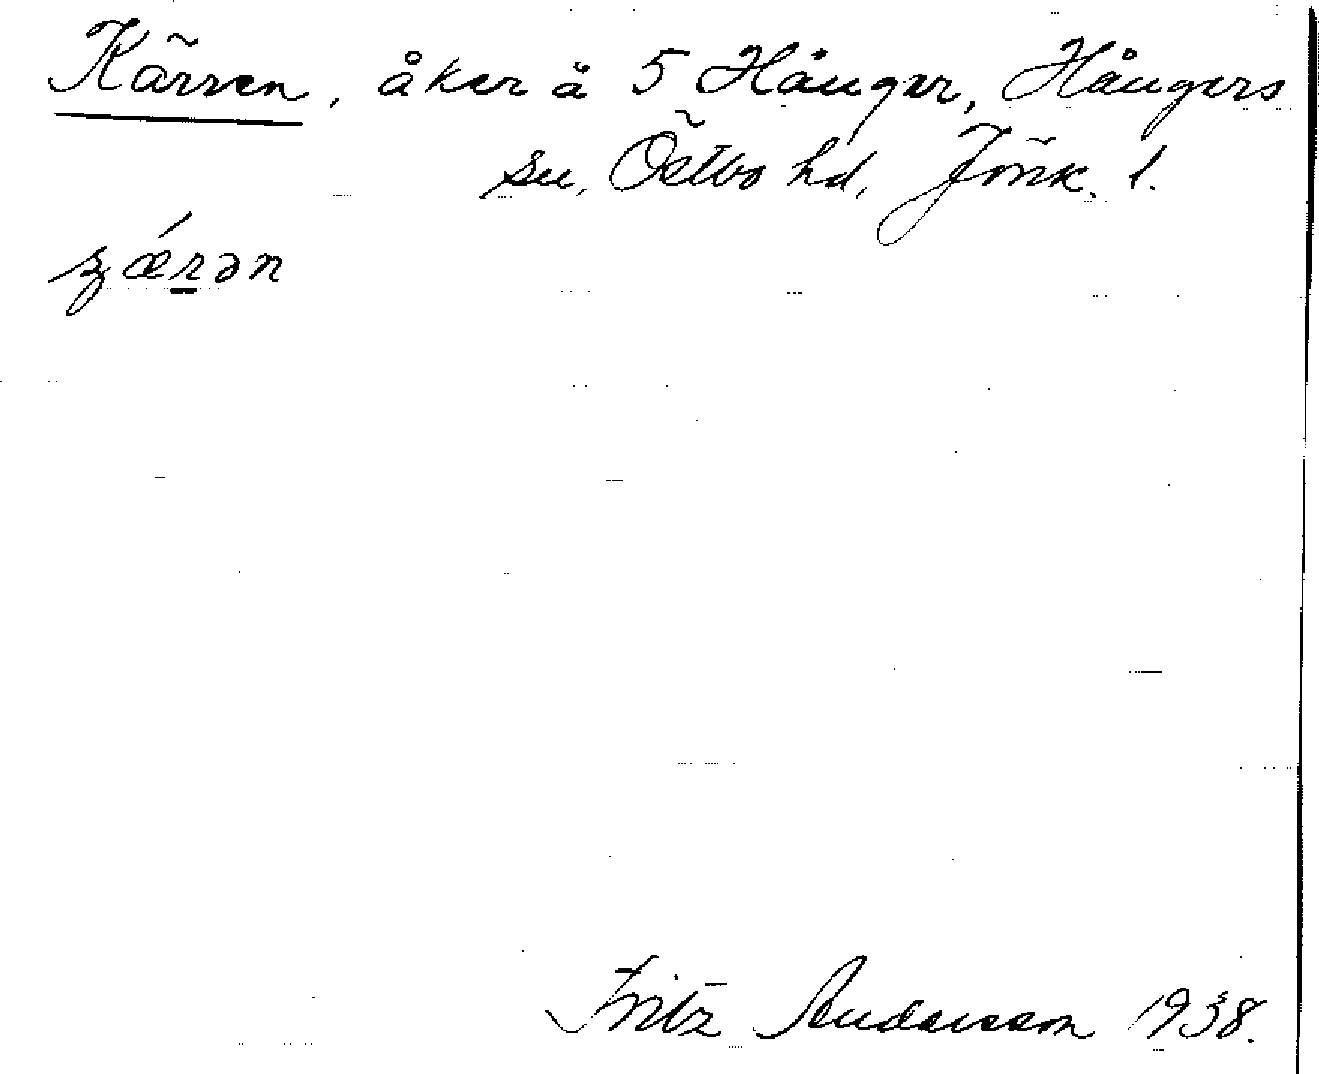 Kärren, åker å 5 Hånger, Hångers
sn, Östbo hd, Jönk. l.
ʂǽrən
Fritz Andersson 1938.